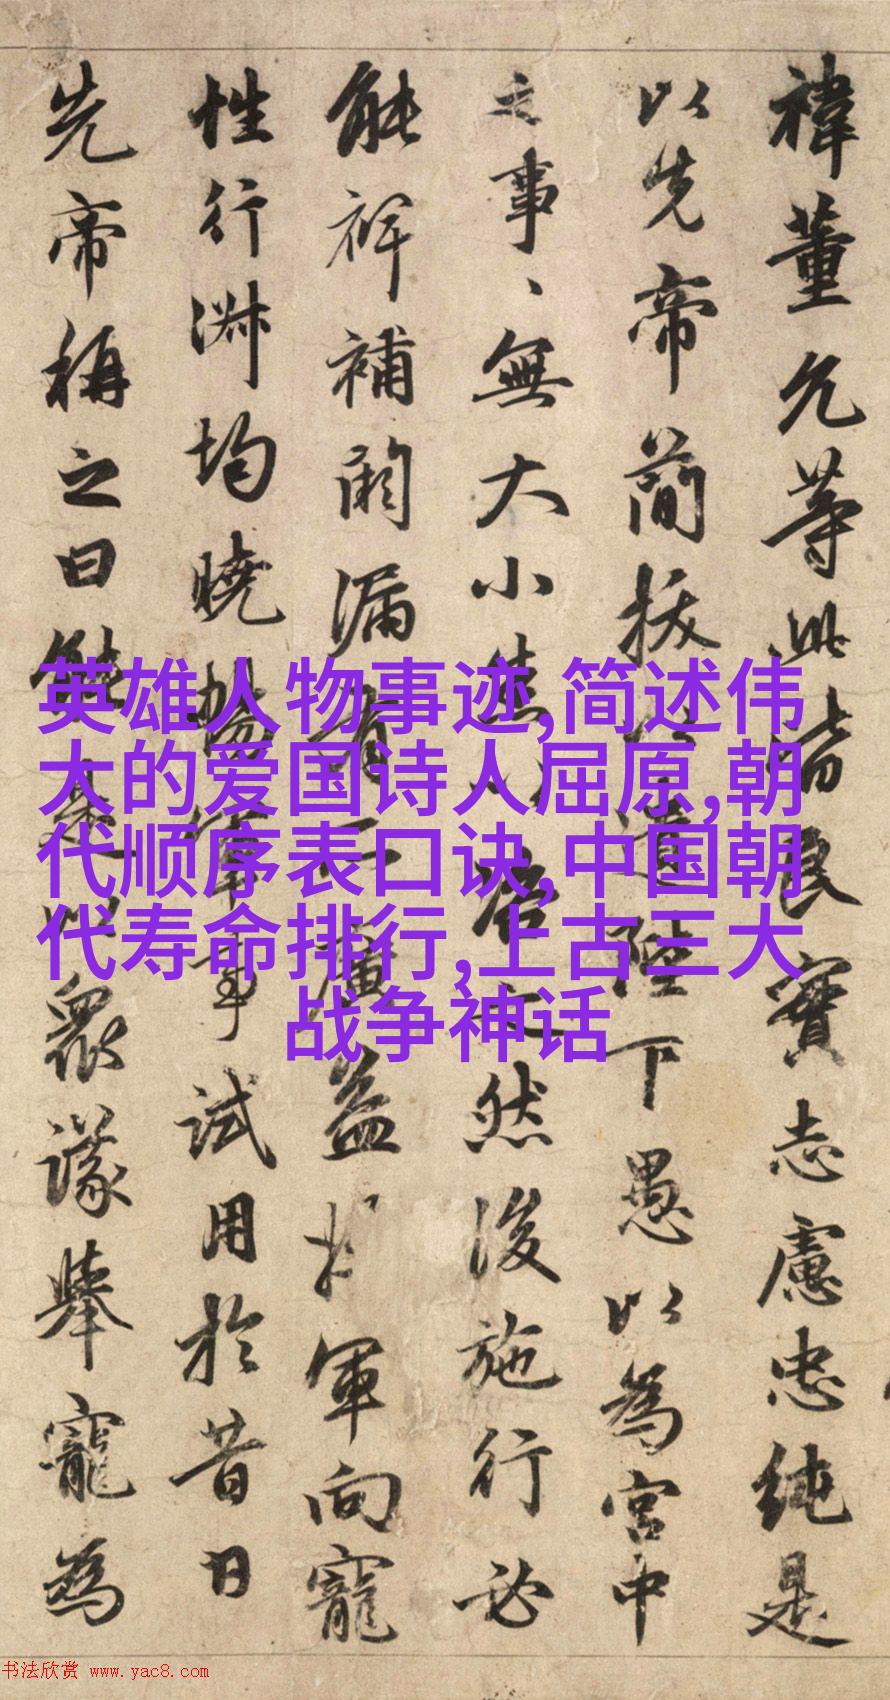 禕董允等此皆良實志慮忠純是
以先帝簡拔以遺陛下愚以為宮中
之事、無大小悉以咨之然後施行必
能裨補闕漏有所廣益將軍向寵
性行淑均曉暢軍事試用於昔日
先帝稱之曰能是以眾議舉寵為
英雄人物事迹,简述伟
大的爱国诗人屈原,朝
代顺序表口诀,中国朝
代寿命排行,上古三大
战争神话
书法欣赏 www.yac8.com